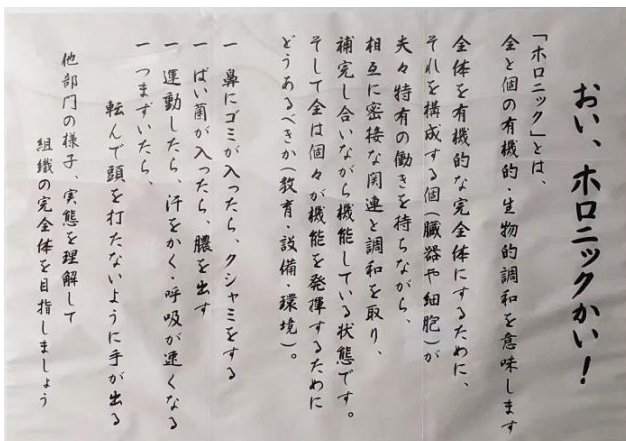 おい、ホロニックかい!
「ホロニック」とは、
全と個の有機的・生物的調和を意味します
全体を有機的な完全体にするために、
それを構成する個(臓器や細胞)が
夫々特有の働きを持ちながら、
相互に密接な関連と調和を取り、
補完し合いながら機能している状態です。
そして全は個々が機能を発揮するために
どうあるべきか(教育・設備・環境)。
一 鼻にゴミが入ったら、クシャミをする
一 ばい菌が入ったら、膿を出す
一 運動したら、汗をかく・呼吸が速くなる
一 つまずいたら、
転んで頭を打たないように手が出る
他部門の様子、実態を理解して
組織の完全体を目指しましょう